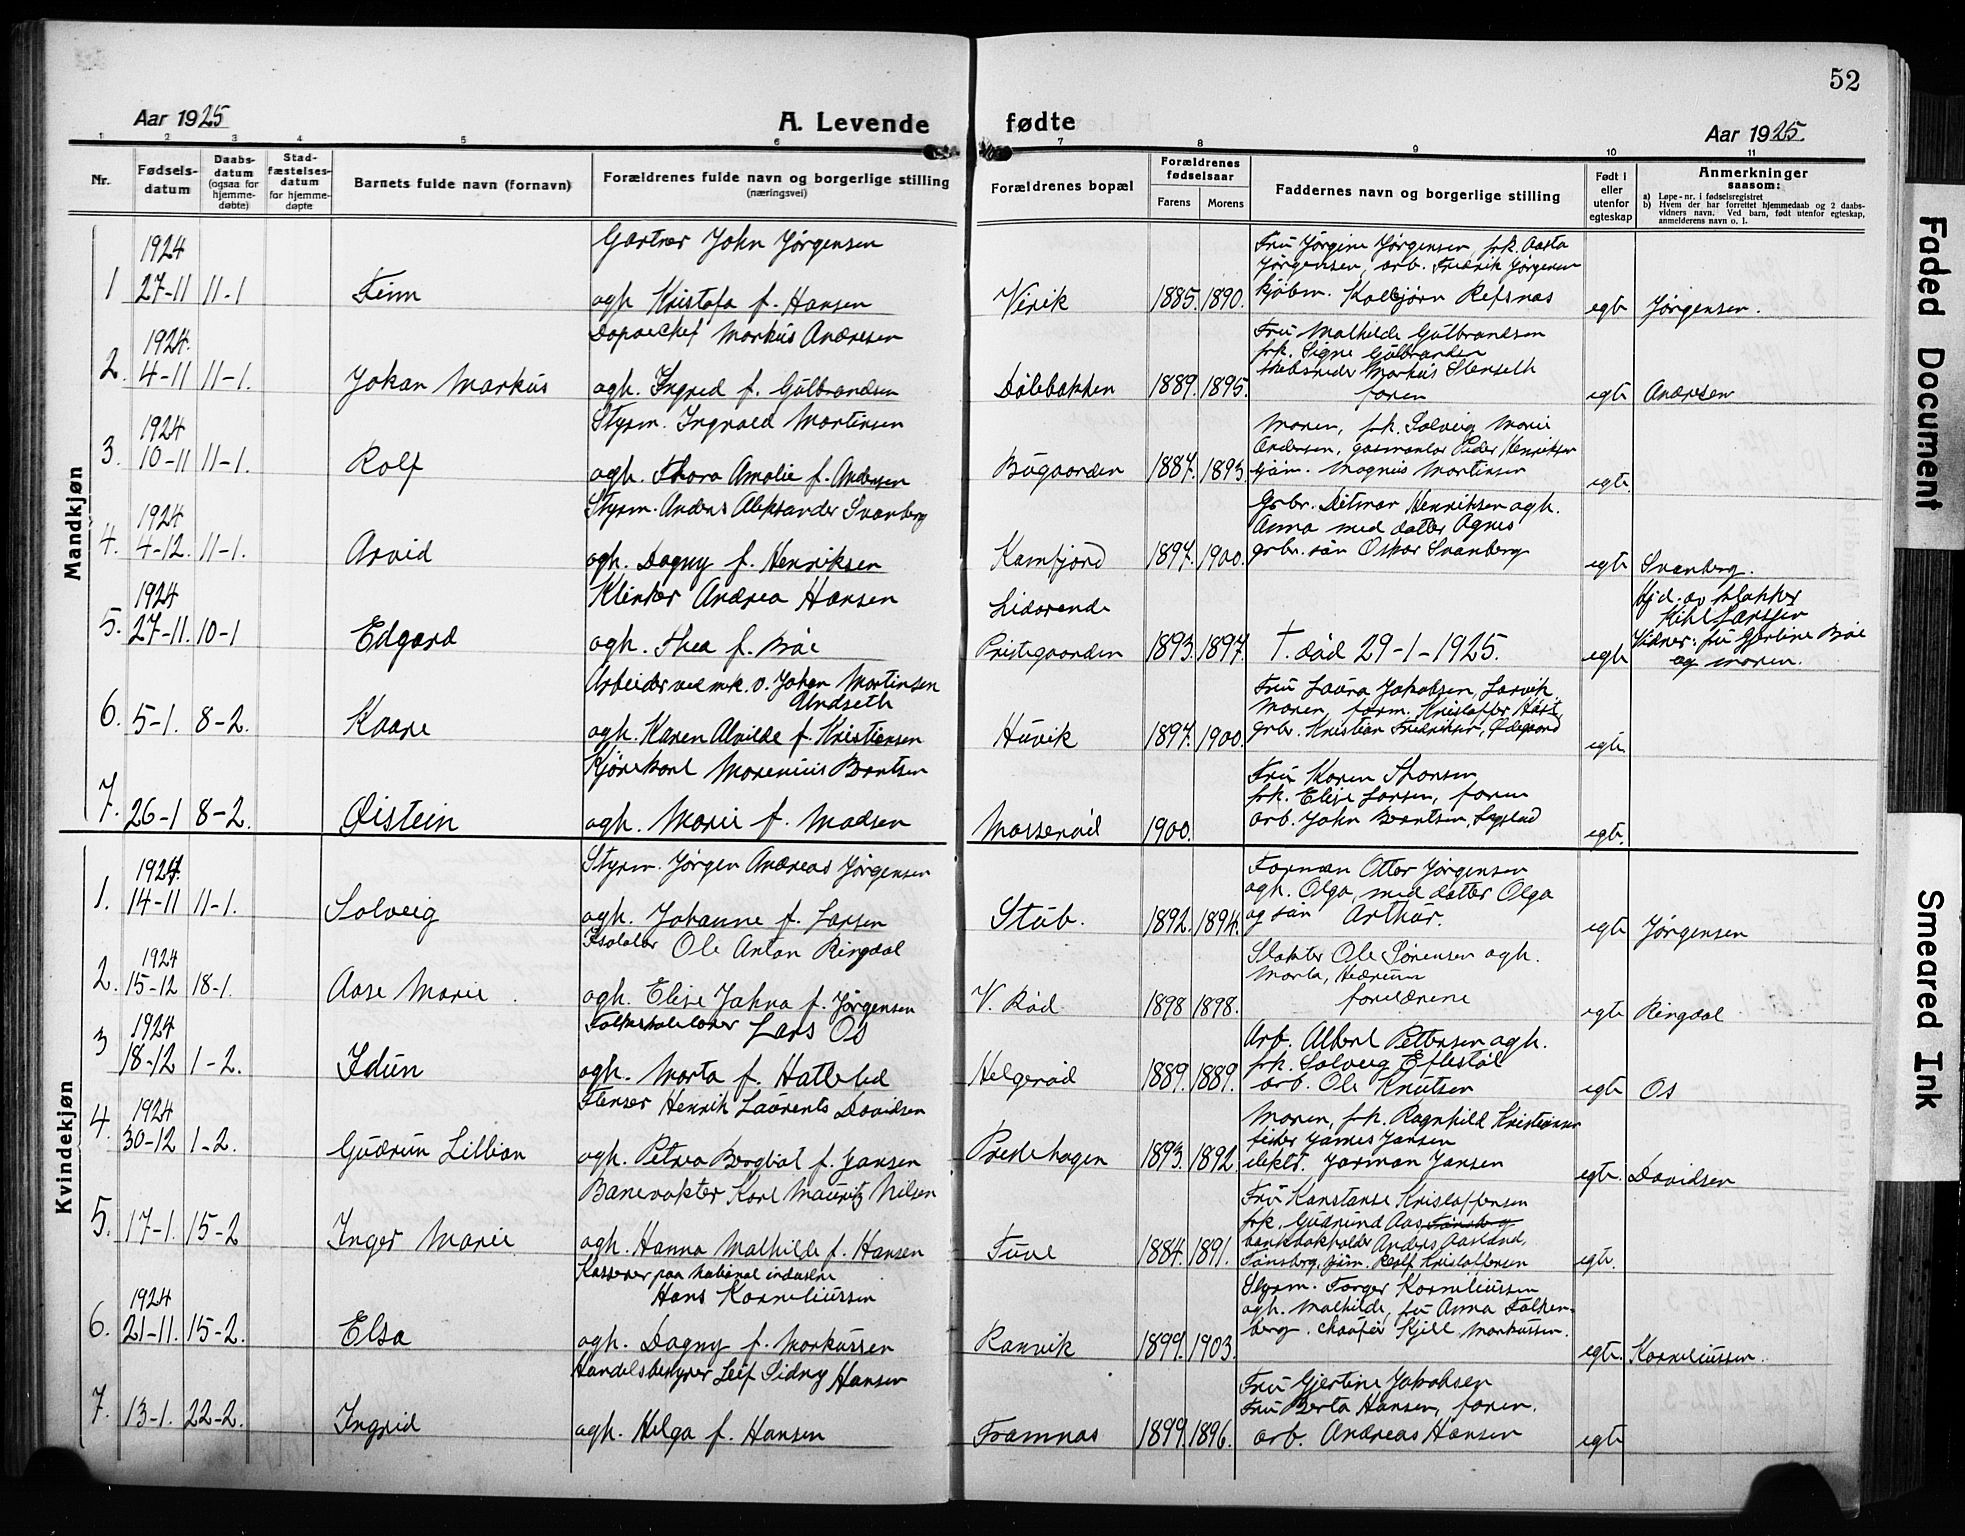 52
Aar 1925
A. Levende
fødte
Aar 1925
1 2 3 4 5 6 7 8 9 10 11
Nr.
Fødsels-
datum
Daabs-
datum
(ogsaa for
hjemme-
døbte)
Stad-
fæstelses-
datum
for hjemme-
døpte
Barnets fulde navn (fornavn)
Forældrenes fulde navn og borgerlige stilling
(næringsvei)
Forældrenes bopæl
Forældrenes
fødselsaar
Farens
Morens
Faddernes navn og borgerlige stilling
Født i
eller
utenfor
egteskap
Anmerkninger
saasom:
a) Løpe-nr. i fødselsregistret
b) Hvem der har forrettet hjemmedaab og 2 daabs-
vidners navn. Ved barn, født utenfor egteskap,
anmelderens navn o. l.
Mandkjøn
1924
1 27-11 11-1 Finn
Gartner John Jørgensen
agh. Kristofa f. Hansen
Virik 1885. 1890.
Fru Jørgine Jørgensen, frk. Aasta
Jørgensen, arb. Fredrik Jørgensen
kjøbm. Kolbjørn Refsnæs
egte Jørgensen.
1924.
2. 4-11 11-1. Johan Markus
Markus Andresen
agh. Ingrid f. Gulbrandsen
Dølebakken 1889. 1895.
Fru Mathilde Gulbrandsen
frk. Signe Gulbrandsen
Markus Stenseth
faren
egte Andresen
1924
3. 10-11 11-1. Rolf
Styrm. Ingvald Martinsen
agh. Thora Amalie f. Andersen
Bugaarden 1887. 1893.
Moren, frk. Solveig Marie
Andersen, gasmontør Peder Henriksen
Magnus Martinsen
egte.
1924
4. 4-12. 11-1. Arvid
Styrm. Anders Aleksander Svanberg
agh. Dagny f. Henriksen
Kamfjord 1897. 1900.
Grbr. Ditmar Henriksen agh.
Anna med datter Agnes
grbr. søn Oskar Svanberg
egte Svanberg.
1924
5. 27-11. 10-1 Edgard
Klinker Andrea Hansen
agh. Thea f. Bøe
Lidarende
Prestegaarden 1893. 1897.
†. død 29-1-1925.
egte
Hjd. av klokker
Kihl Larssen
Vidner: fru Gjertine Bøe
og moren.
6. 5-1. 8-2. Kaare
Arbeider ved mek. v. Johan Martinsen
Andseth
agh. Karen Alvilde f. Kristiansen
Huvik 1897. 1900.
Fru Laura Jakobsen, Larvik
Moren, form. Kristoffer Høst,
grbr. Kristian Fredriksen, Ødegaard
egte.
7. 26-1 8-2. Øistein
Kjørekarl Marenius Berntsen
agh. Marie f. Madsen
Masserød 1900.
Fru Karen Thorsen
frk. Elise Larsen, faren
arb. John Berntsen,
egte.
Kvindekjøn
1924.
1. 14-11 11-1. Solveig
Styrm. Jørgen Andreas Jørgensen
agh. Johanne f. Larsen
Stub. 1892. 1894.
Forman Otter Jørgensen
agh. Olga, med datter Olga
og søn Arthur.
egte Jørgensen
1924
2. 15-12 18-1. Aase Marie
Isolatør Ole Anton Ringdal
agh. Elise Johna f. Jørgensen
V. Rød 1898 1898.
Slakter Ole Sørensen agh.
Marta, Hedrum
forældrene
egte Ringdal
1924
3 18-12 1-2. Idun
Folkeskolelærer Lars Os
agh. Marta f. Hatteled
Helgerød 1889. 1889.
Arb. Albert Pettersen agh.
frk. Solveig Eftestøl
arb. Ole Knutsen
egte Os
1924
4. 30-12 1-2. Gudrun Lillian
Flenser Henrik Laurents Davidsen
agh. Petrea Bergliot f. Jansen
Prestehagen 1893. 1892.
Moren, frk. Ragnhild Kristiansen
fisker James Jansen
elektr. Jarman Jansen
egte. Davidsen
5. 17-1. 15-2 Inger Marie
Banevokter Karl Mauritz Nilsen
agh. Hanna Mathilde f. Hansen
Tuve 1884. 1891.
Fru Konstanse Kristoffersen
frk. Gudrund Aas Tønsberg
bankbokholder Anders Aasland,
Tønsberg, gjøm. Rolf Kristoffersen
egte.
1924
6. 21-11. 15-2. Elsa
Kasserer paa National industri
Hans Korneliussen
agh. Dagny f. Markussen
Ranvik 1899. 1903.
Styrm. Torger Korneliussen
agh. Mathilde, fru Anna Falken-
berg. chauffør Kjell Markussen.
egte. Korneliussen.
7. 13-1. 22-2. Ingrid
Handelsbestyrer Leif Sidny Hansen
agh. Helga f. Hansen
Framnæs 1899. 1896.
Fru Gjertine Jakobsen
Fru Berta Hansen, faren.
arb. Andreas Hansen
egte
Faded Document
Smeared Ink